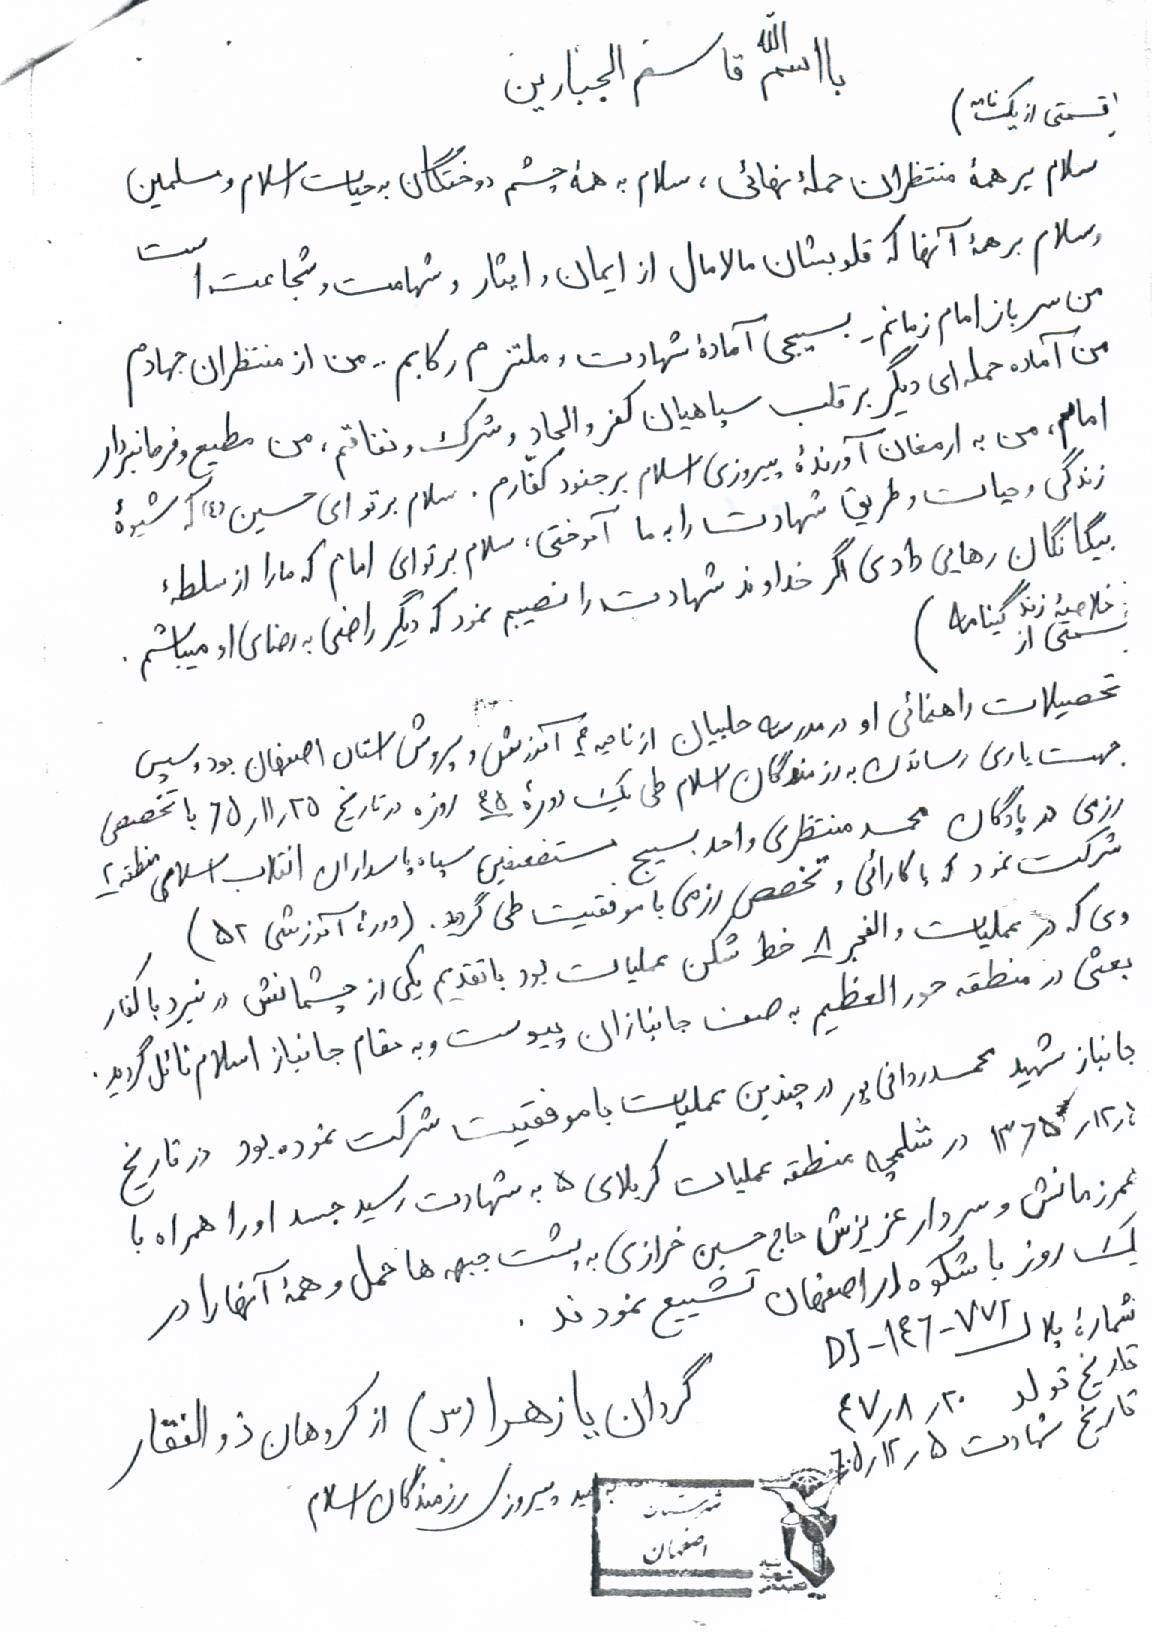 بااسم الله قاسم الجبارین
(قسمتی از یک نامه)
سلام بر همهٔ منتظران حملهٔ نهائی، سلام به همهٔ چشم دوختگان به حیات اسلام و مسلمین
وسلام بر همهٔ آنها که قلوبشان مالامال از ایمان و ایثار و شهامت و شجاعت است
من سرباز امام زمانم_ بسیجی آمادهٔ شهادت و ملتزم رکابم .. من از منتظران جهادم
من آماده حمله‌ای دیگر بر قلب سپاهیان کفر و الحاد و شرک و نفاقم، من مطیع و فرمانبردار
امام، من به ارمغان آورندهٔ پیروزی اسلام بر جنود کفّارم. سلام بر تو ای حسین (ع) که شیوهٔ
زندگی و حیات و طریق شهادت را به ما آموختی، سلام بر تو ای امام که ما را از سلطهٔ
بیگانگان رهایی دادی اگر خداوند شهادت را نصیبم نمود که دیگر راضی به رضای او میباشم.
قسمتی از خلاصهٔ زندگینامه)
تحصیلات راهنمائی او در مدرسه حلبیان از ناحیه ۳ آموزش و پرورش استان اصفهان بود و سپس
جهت یاری رساندن به رزمندگان اسلام طی یک دورهٔ ۴۵ روزه در تاریخ ۶۵/۱۱/۲۵ با تخصص
رزمی در پادگان محمد منتظری واحد بسیج مستضعفین سپاه پاسداران انقلاب اسلامی منطقه ۲
شرکت نمود که با کارائی و تخصص رزمی با موفقیت طی گردید. (دورهٔ آموزشی ۵۲)
وی که در عملیات والفجر ۸ خط شکن عملیات بود با تقدیم یکی از چشمانش در نبرد با کفار
بعثی در منطقه حورالعظیم به صف جانبازان پیوست و به مقام جانباز اسلام نائل گردید.
جانباز شهید محمد ردانی پور در چندین عملیات با موفقیت شرکت نموده بود در تاریخ
۱۳۶۵/۱۲/ در شلمچه منطقه عملیات کربلای ۵ به شهادت رسید جسد او را همراه با
همرزمانش و سردار عزیزش حاج حسین خرازی به پشت جبهه ها حمل و همهٔ آنها را در
یک روز با شکوه در اصفهان تشییع نمودند.
شمارهٔ پلاک DJ-۱۴۶-۷۷۲
تاریخ تولد ۴۷/۸/۲۰
تاریخ شهادت ۶۵/۱۲/۵
گردان یا زهرا (س) از گروهان ذوالفقار
به امید پیروزی رزمندگان اسلام
شهرستان
اصفهان
بنیاد
شهید